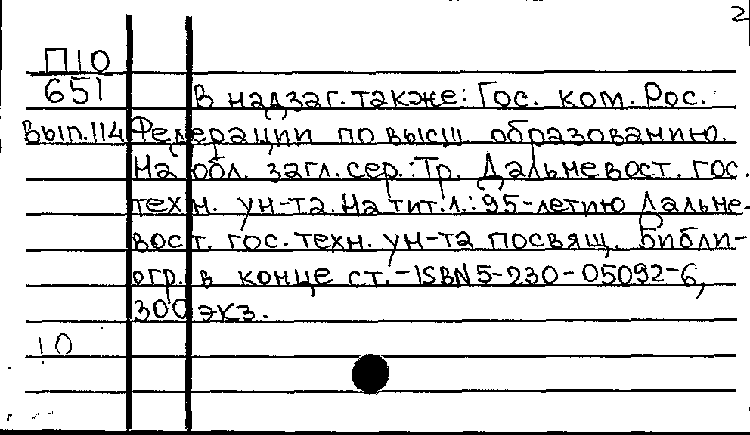 2
П10
651
В надзаг. также: Гос. ком. Рос.
Вып. 114 Федерации по высш. образованию.
На обл. загл. сер.: Тр. Дальневост. гос.
техн. ун-та. На тит. л.: 95-летию Дальне-
вост. гос. техн. ун-та посвящ. Библи-
огр. в конце ст. - ISBN 5-230-05092-6,
300 экз.
10